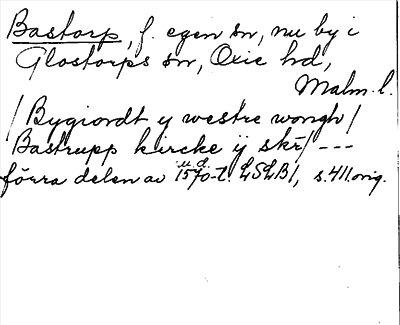 Bastorp, f. egen sn, nu by i
Glostorps sn, Oxie hd,
Malm. l.
/Bygiordt y westre wongh/
Bastrupp kircke ÿ skr/ ---
förra delen av 1570-t. LSLB1, s. 411. orig.
u. d.